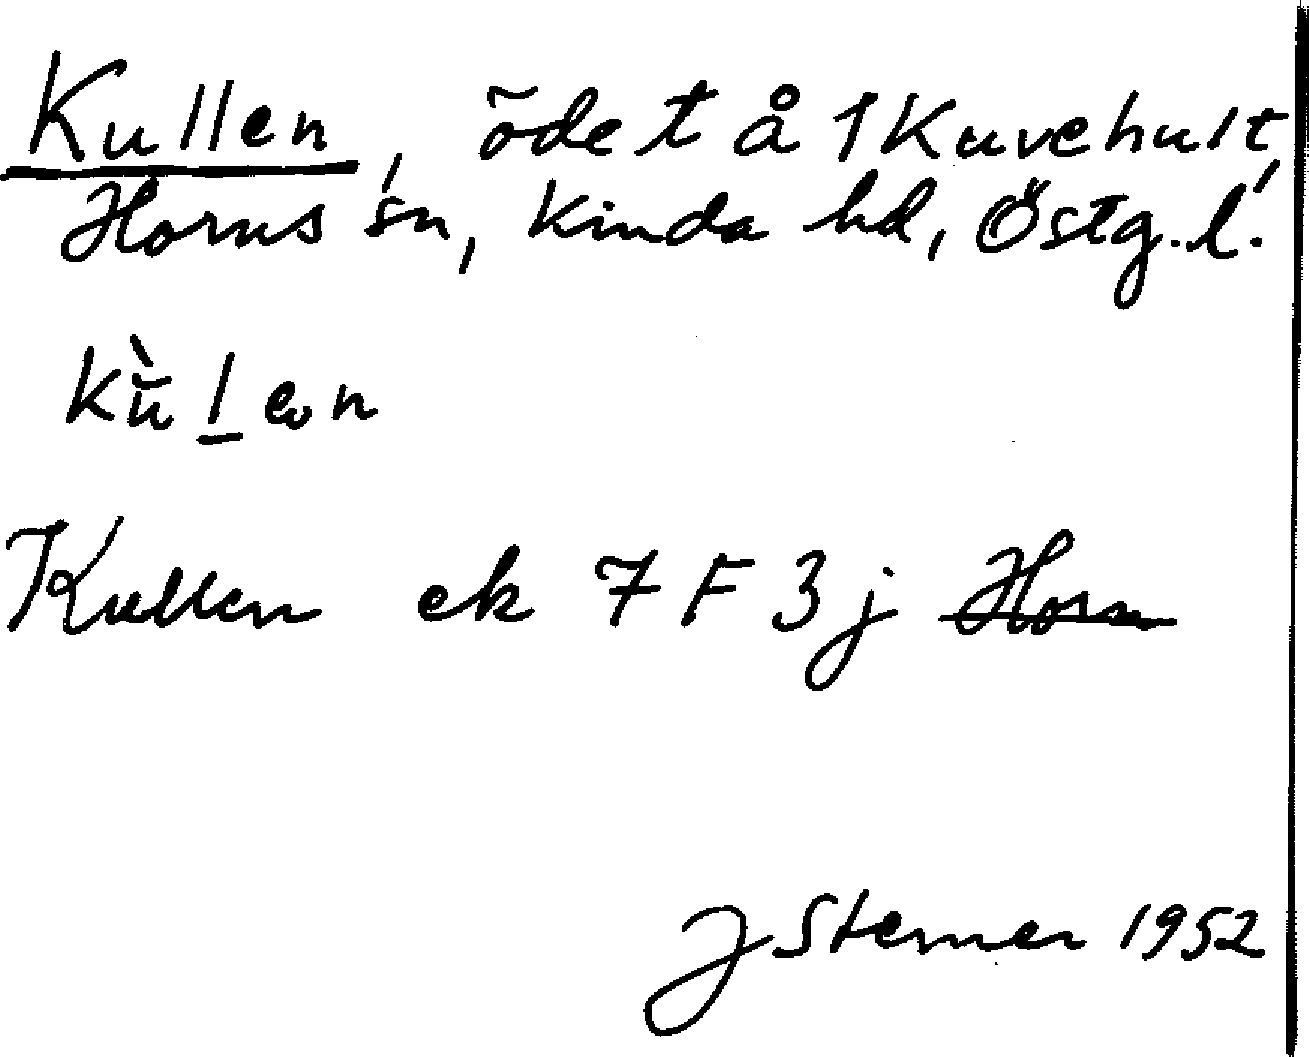 Kullen, öde t å 1 Kuvehult,
Horns sn, Kinda hd, Östg. l.
kù̆l̲en
Kullen ek 7 F 3 j Horn
J Sterner 1952